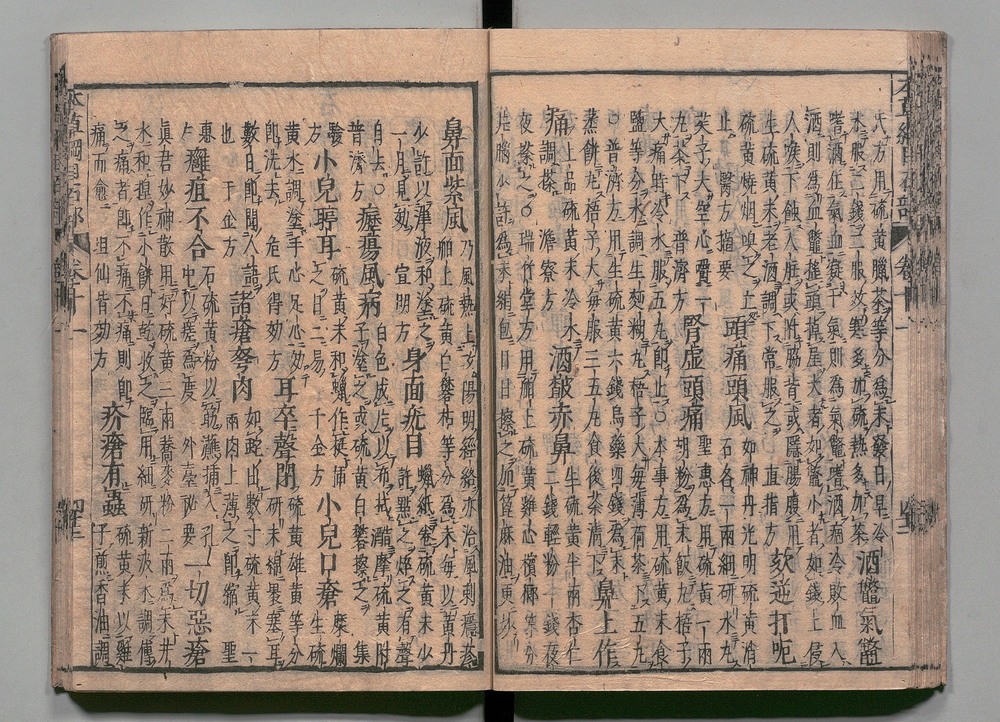 氏方用硫黃臘茶等分爲末發日早冷
水服二錢二服效寒多加硫熱多加茶 酒鼈氣鼈
酒則爲血鼈搖頭掉尾大者如鼈小者如錢上侵
人喉下蝕人肛或附脇背或隱腸腹用
生硫黃末老酒調下常服之 直指方 欬逆打呃
硫黃燒烟嗅之立
止 醫方摘要 頭痛頭風 如神丹光明硫黃消
石各一兩細研水丸
芡子大空心嚼一 腎虛頭痛 聖惠方用硫黃一兩
胡粉爲末飯丸梧子
大痛時冷水服五丸卽止○本事方用硫黃末食
鹽等分水調生麵糊丸梧子大每薄荷茶下五丸
○普濟方用生硫黃六錢烏藥四錢爲末
蒸餅丸梧子大每服三五丸食後茶淸下 鼻上作
痛 上品硫黃末冷水
調搽 澹寮方 酒皶赤鼻 生硫黃半兩杏仁
二錢輕粉一錢夜
夜搽之○瑞竹堂方用舶上硫黃雞心檳榔等分
片腦少許爲末絹包日日擦之加蓖麻油更妙
鼻面紫風 乃風熱上攻陽明經絡亦治風刺癮疹
舶上硫黃白礬枯等分爲末每以黃丹
少許以津液和塗之
一月見效 宣明方 身面疣目 蠟紙卷硫黃末少
許點之焠之有聲
自去○ 癧瘍風病 白色成片以布拭醋摩硫黃附
子塗之或硫黃白礬擦之 集
驗方 小兒聤耳 硫黃末和蠟作挺插
之日二易 千金方 小兒口瘡 糜爛
生硫
黃水調塗手心足心效
卽洗去 危氏得效方 耳卒聾閉 硫黃雄黃等分
研末緜裹塞耳
數日卽聞人語
也 千金方 諸瘡努肉 如蛇出數寸硫黃末一
兩肉上薄之卽縮 聖
惠方 癰疽不合 石硫黃粉以筯蘸插入孔
中以瘥爲度 外臺祕要 一切惡瘡
眞君妙神散用好硫黃三兩蕎麥粉二兩爲末井
水和揑作小餅日乾收之臨用細研新汲水調傅
之痛者卽不痛不痛則卽
痛而愈 坦仙皆效方 疥瘡有蟲 硫黃末以雞
子煎香油調